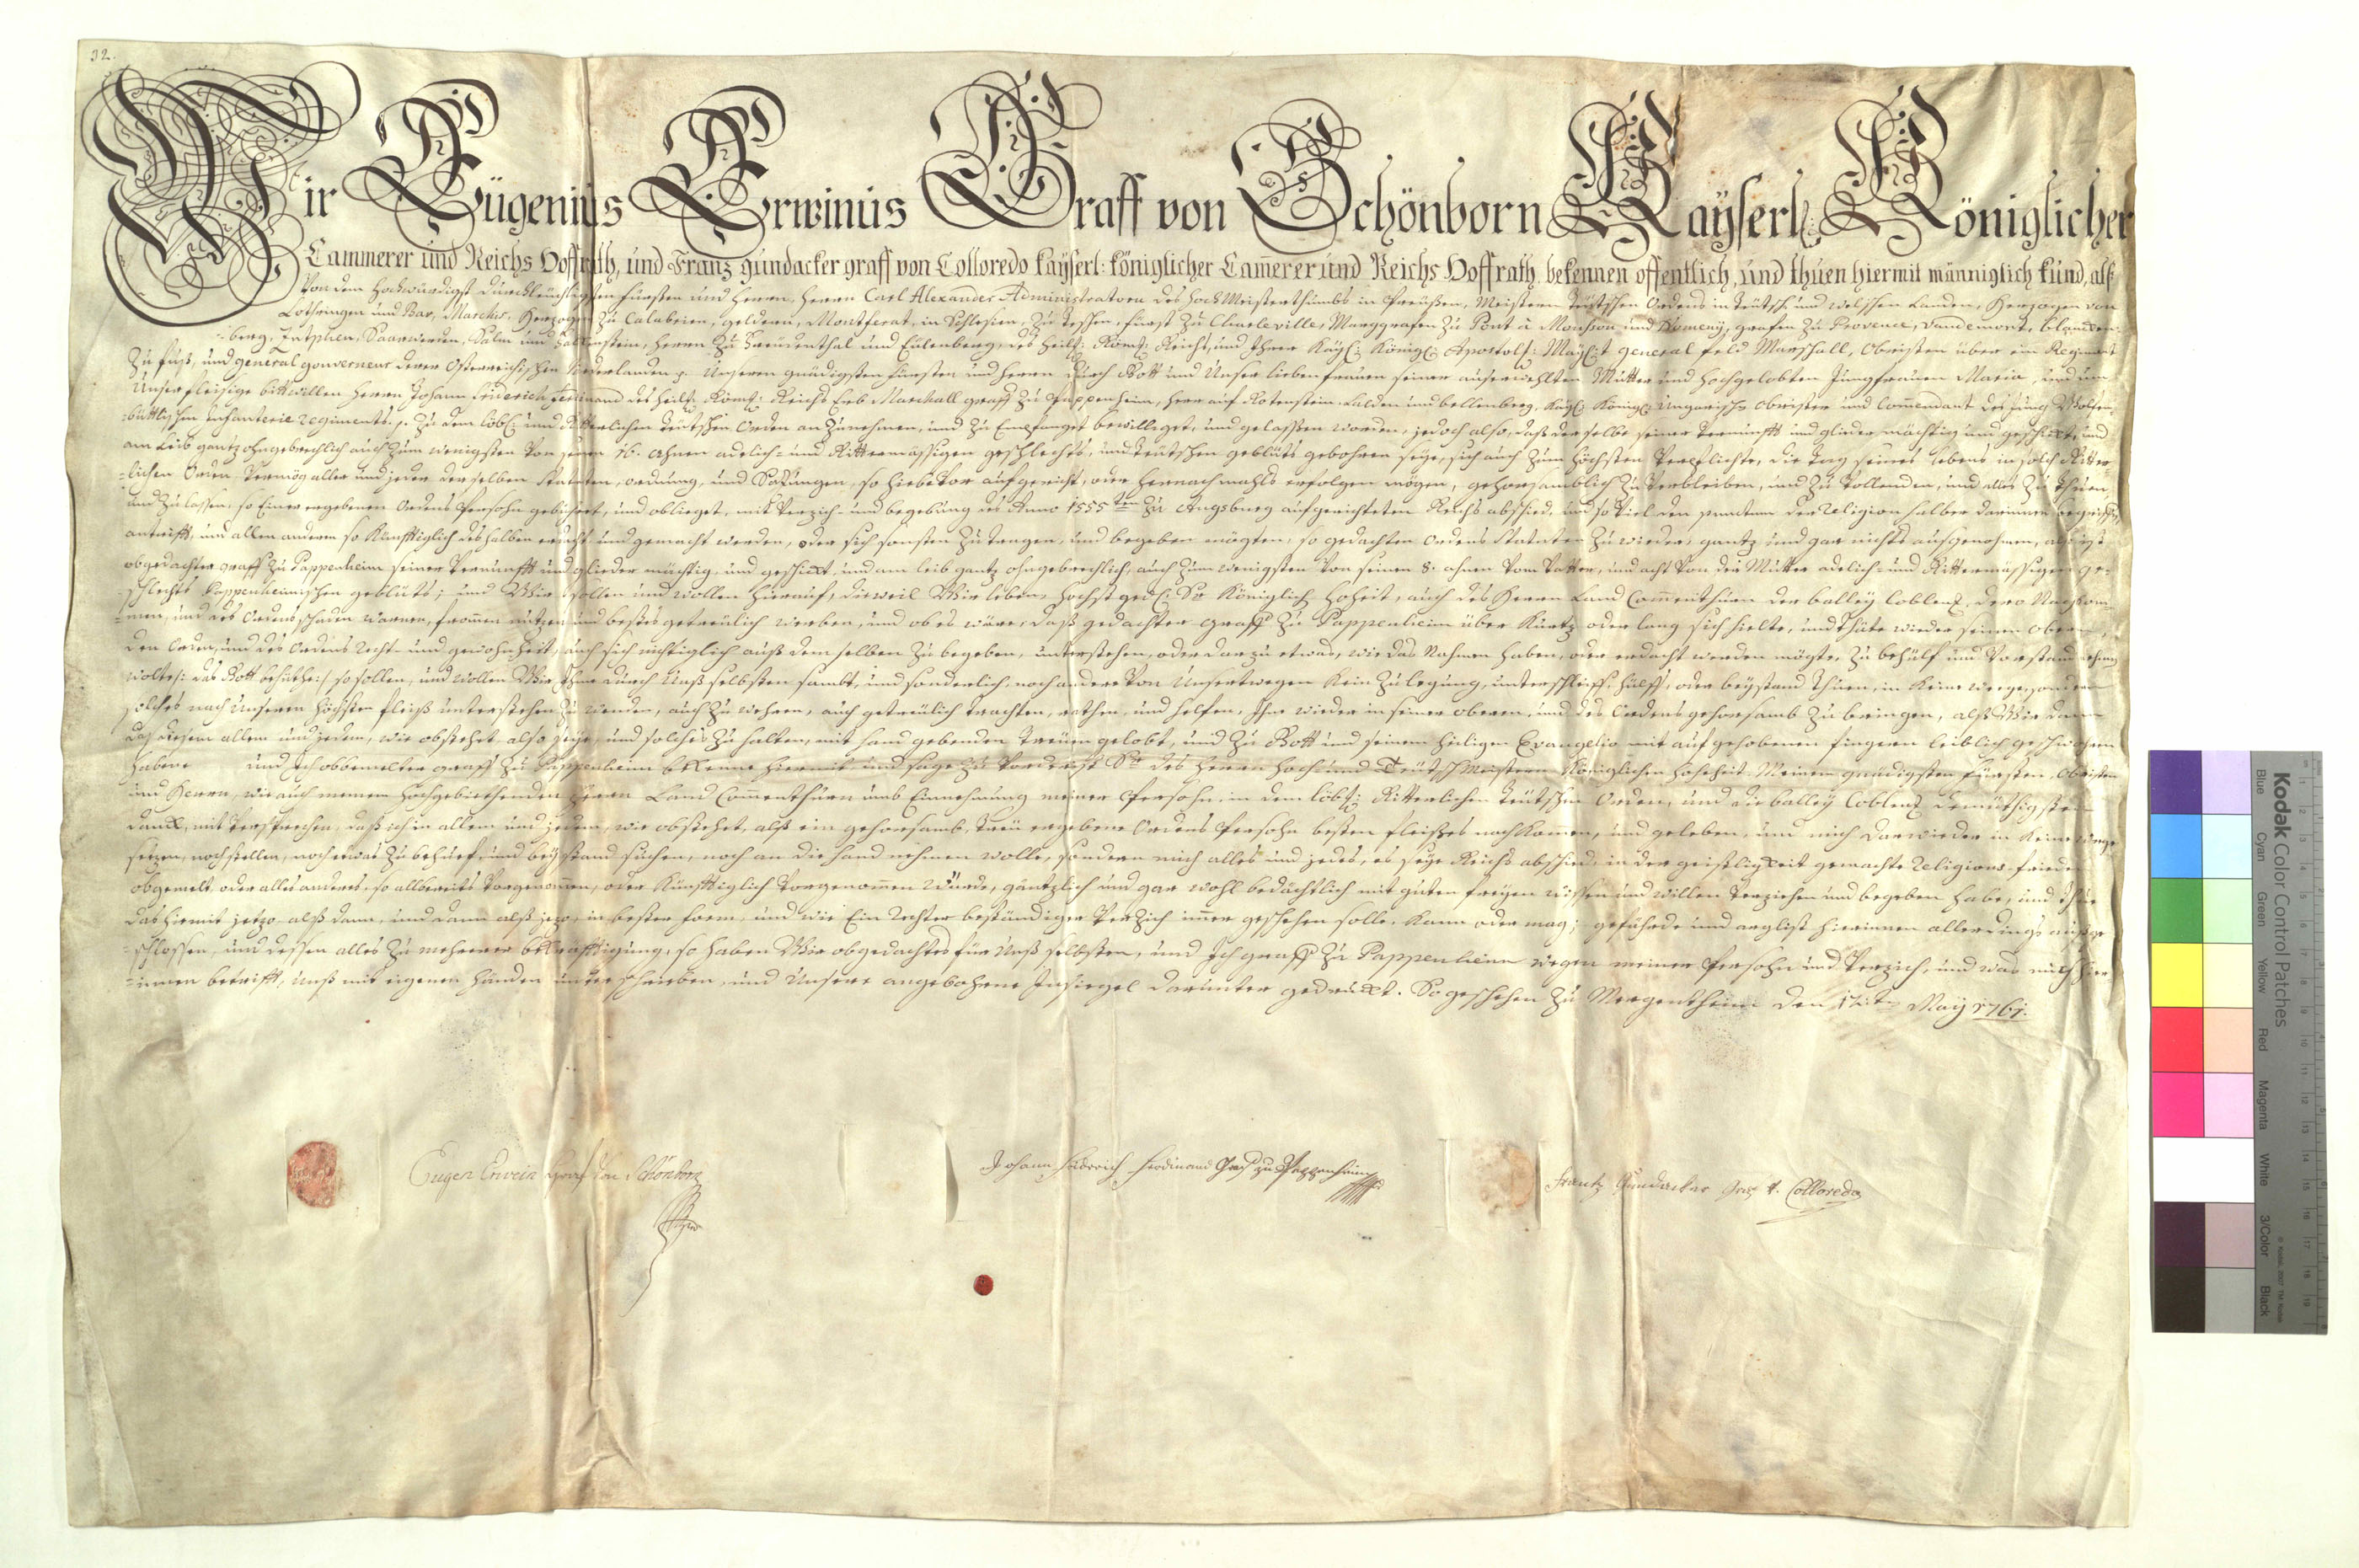 32.
Wir Eügeniüs Erwiniüs Graff von Schönborn Kaÿserl: Königlicher
Cammerer und Reichs Hoffrath, und Franz gundacker graff von Colloredo kaÿserl: königlicher Cam̄erer und Reichs Hoffrath, bekennen offentlich, und thuen hiermit männiglich kund, alß
Von dem Hochwürdigst Durchleüchtigsten Fürsten und Herrn, Herrn Carl Alexander Administratorn des HochMeisterthumbs in Preüßen, Meistern Teütschen Ordens in Teütsch und welschen Landen, Hertzogen von
Lothringen und Bar, Marchis, Hertzogen zu Calabrien, geldern, Montferat, in Schlesien, zu Teschen, Fürst zu Charleville, Marggrafen zu Pont à Mousson und Nomenÿ, grafen zu Provence, Vaudemont, blancken-
-berg, Zütphen, Saarwerden, Salm und Falckenstein, Herrn zu Freüdenthal und Eülenberg, des Heil: Röm: Reichs, und Ihrer Kaÿ: König: Apostol: Maÿ:t general Feld Marschall, Obristen über ein Regiment
zu fuß, und general gouverneur deren Osterreichischen Niederlanden p. Unseren gnädigsten Fürsten und Herrn, durch Gott und Unser lieben frauen seiner auserwehlten Mütter und Hochgelobten Jungfrauen Maria, und um
Unser fleisige bitt willen Herrn Johann Friderich Ferdinand des Heil: Röm: Reichs Erb Marschall graff zu Pappenheim, Herr auf Rotenstein, Calden und bellenberg, Kaÿ: König: Ungarischer Obrister und Com̄endant des Jung Wolfen-
-büttlischen Infanterie Regiments p. zu dem löb: und Ritterlichen Teütschen Orden anzunehmen, und zu Empfangen bewilliget, und gelassen worden, jedoch also, daß derselbe seiner Vernunfft und glieder mächtig und geschickt, und
am Leib gantz ohngebrechlich auch zum wenigsten von seinen 16. Ahnen adelich- und Rittermässigen geschlechts, und Teütschen geblüts gebohren seÿe, sich auch zum höchsten Verpflichte, die Tag seines Lebens in solch Ritter-
-lichen Orden, Vermög aller und jeder derselben Statuten, ordnung, und Satzungen, so hiebevor aufgericht, oder hernachmahls erfolgen mögen, gehorsamblich zu Verbleiben, und zu Vollenden, und alles zu thuen,
und zu lassen, so Einer ergebenen Ordens Persohn gebühret, und oblieget, mit Verzich- und begebung des Anno 1555ten zu Augsburg aufgerichteten Reichs abschied, und so viel den punctum der Religion halber darinnen begriffen,
antrifft, und allen anderen so Künfftiglich deshalben erdacht und gemacht werden, oder sich sonsten zutragen, und begeben mögten, so gedachten Ordens Statuten zu wieder, gantz und gar nichts ausgenohmen, als ist
obgedachter graff zu Pappenheim seiner Vernunfft und glieder mächtig, und geschickt, und am leib gantz ohngebrechlich, auch zum wenigsten von seinen 8. ahnen Vom Vatter, und acht von der Mütter adelich- und Rittermässigen ge-
-schlechts Pappenheimischen geblüts; und Wir sollen und wollen hierauf, dieweil Wir leben, Höchstged: Sr Königlich: Hoheit, auch des Herrn Land Com̄enthuren der balleÿ Coblenz, dero Nachkom-
-men, und des Ordens schaden warnen, frommen nutzen und bestes getreülich werben, und ob es wäre, daß gedachter graff zu Pappenheim über Kurtz oder lang sich hielte, und thäte wieder seinen Obern,
den Orden, und des Ordens recht- und gewohnheit, auch sich nichtiglich auß demselben zu begeben, unterstehen, oder darzu etwas, wie das Nahmen haben, oder erdacht werden mögte, zu behülf und Vorstand nehmen
wolte /: das Gott behüthe :/ so sollen, und wollen Wir, Ihme durch Unß selbsten sambt, und sonderlich, noch andere von Unsertwegen kein zulegung, unterschlieff, hülff, oder beÿstand thuen, in keine weege, sondern
solches nach Unseren höchsten fleiß unterstehen zu wenden, auch zu wehren, auch getreülich trachten, rathen, und helfen, Ihne wieder in seiner obern, und des Ordens gehorsamb zu bringen, alß Wir dann
das diesem allem und jedem, wie obstehet also seÿe, und solches zu halten, mit hand gebenden Treüen gelobt, und zu Gott und seinem heiligen Evangelio mit aufgehobenen fingern leiblich geschwohren
haben. und Ich obbemelter graff zu Pappenheim bekenne hiermit und sage zu Vorderst Sr des Herrn Hoch- und Teütschmeistern Königlichen Hoheheit Meinem gnädigsten Fürsten, Obristen
und Herrn, wie auch meinem Hochgebiethenden Herrn Land Com̄enthurn umb Einnehmung meiner Persohn in dem löb: Ritterlichen Teütschen Orden, und die balleÿ Coblenz demüthigsten
danck, mit versprechen, daß ich in allem und jedem, wie obstehet, alß ein gehorsamb, treü ergebene Ordens Persohn besten fleißes nachkom̄en, und geleben, und mich darwieder in keine weege
setzen, noch stellen, noch etwas zu behuef, und beÿstand suchen, noch an die hand nehmen wolle, sondern mich alles und jedes, es seÿe Reichs abschied, in der geistligkeit gemachte Religions-frieden
obgemelt, oder alles anderes, so allbereits Vorgenom̄en, oder Künfftiglich Vorgenom̄en würde, gäntzlich und gar wohl bedächtlich mit guten freÿen wissen und willen Verziehen und begeben habe, und thue
das hiermit jetzo alß dann, und dann alß jezo, in bester form, und wie Ein Rechter beständiger Verzich im̄er geschehen solle, kann oder mag; gefährde und arglist hierinnen allerdings außge-
-schlossen, und dessen alles zu mehrerer bekräfftigung, so haben Wir obgedachte für Unß selbsten, und Ich graff zu Pappenheim wegen meiner Persohn und Verzich, und was mich hier-
-innen betrifft, Unß mit eigenen Handen unterschrieben, und Unsere angebohrne Insiegel darunter gedruckt. So geschehen zu Mergentheim den 17ten Maÿ 1761.
Eugen Erwein Graf von Schönborn
Johann Friderich Ferdinand Graf zu Pappenheim
Frantz Gundacker Graf v. Colloredo
Kodak Color Control Patches
Blue Cyan Green Yellow Red Magenta White 3/Color Black